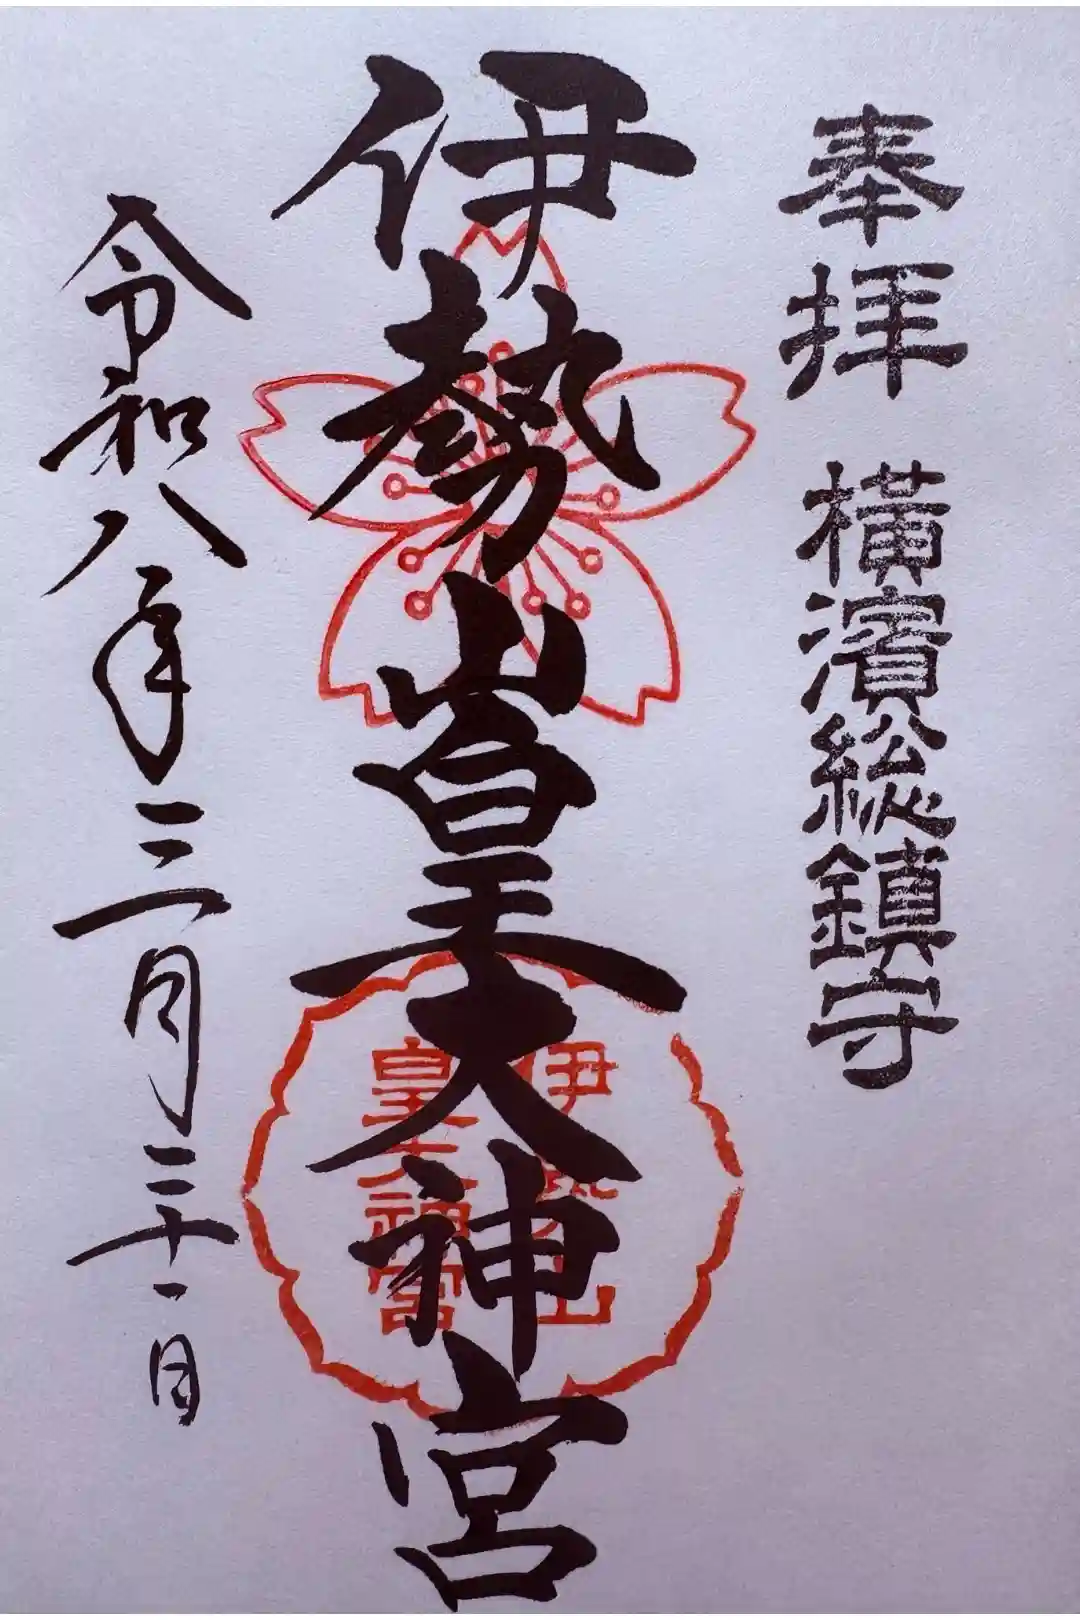 奉拝 横濱総鎮守
伊勢山皇大神宮
令和八年三月二十一日
伊勢山
皇大神宮